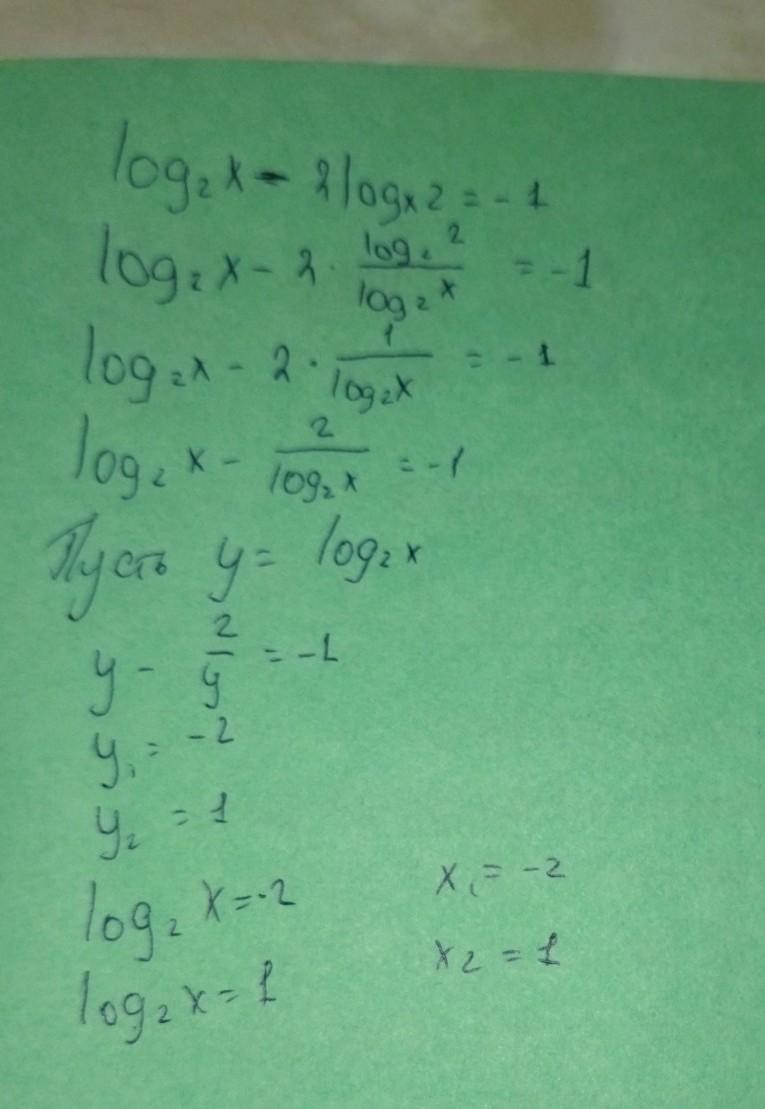 log₂x - 2logₓ2 = -1
log₂x - 2 · log₂2/log₂x = -1
log₂x - 2 · 1/log₂x = -1
log₂x - 2/log₂x = -1
Пусть y = log₂x
y - 2/y = -1
y₁ = -2
y₂ = 1
log₂x = -2 x₁ = -2
log₂x = 1 x₂ = 1